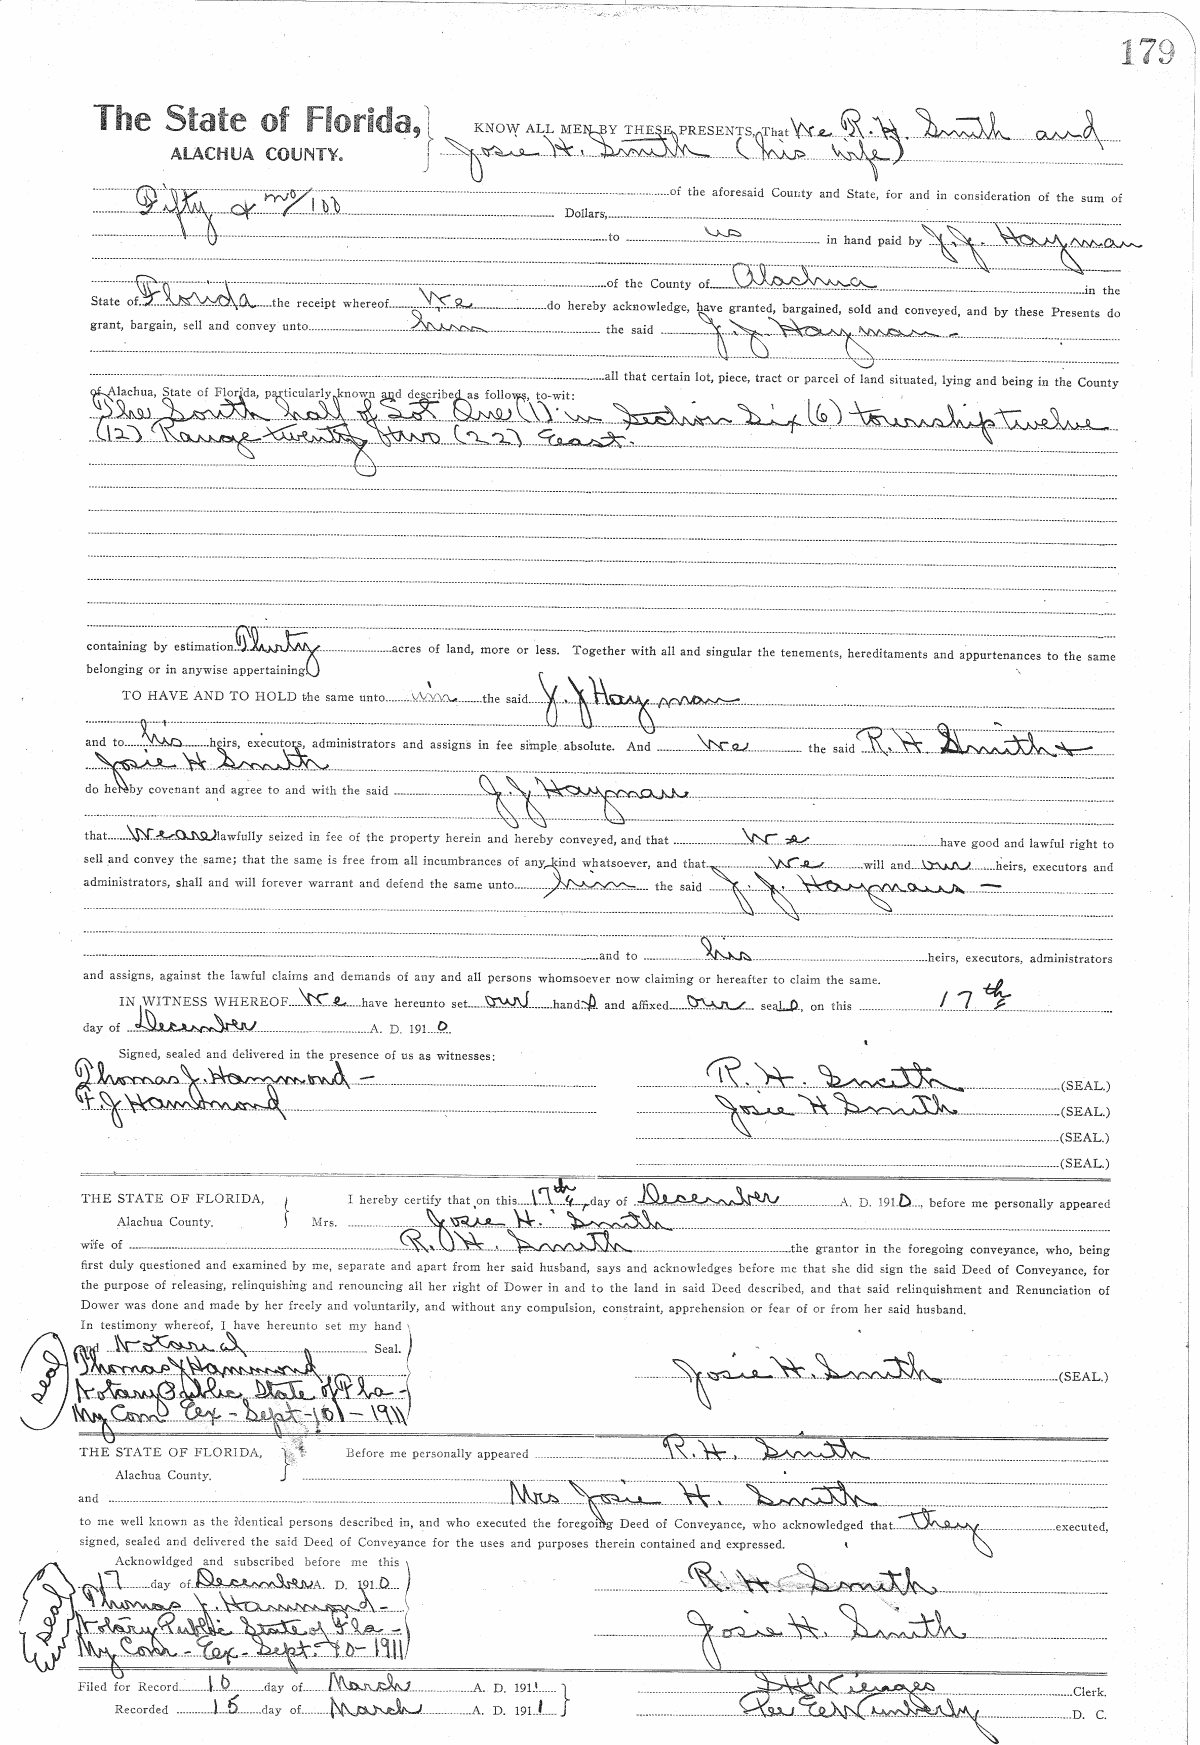 179
The State of Florida,
ALACHUA COUNTY.
KNOW ALL MEN BY THESE PRESENTS, That We R. H. Smith and
Josie H. Smith (his wife)
of the aforesaid County and State, for and in consideration of the sum of
Fifty & no/100 Dollars,
to us in hand paid by J. J. Hayman
of the County of Alachua in the
State of Florida the receipt whereof We do hereby acknowledge, have granted, bargained, sold and conveyed, and by these Presents do
grant, bargain, sell and convey unto him the said J. J. Hayman -
all that certain lot, piece, tract or parcel of land situated, lying and being in the County
of Alachua, State of Florida, particularly known and described as follows, to-wit:
The South half of Lot One (1) in Section Six (6) township twelve
(12) Range twenty two (22) East.
containing by estimation Thirty acres of land, more or less. Together with all and singular the tenements, hereditaments and appurtenances to the same
belonging or in anywise appertaining.
TO HAVE AND TO HOLD the same unto him the said J. J Hayman
and to his heirs, executors, administrators and assigns in fee simple absolute. And We the said R. H. Smith &
Josie H Smith
do hereby covenant and agree to and with the said J. J Hayman
that We are lawfully seized in fee of the property herein and hereby conveyed, and that We have good and lawful right to
sell and convey the same; that the same is free from all incumbrances of any kind whatsoever, and that We will and our heirs, executors and
administrators, shall and will forever warrant and defend the same unto him the said J. J. Haymans -
and to his heirs, executors, administrators
and assigns, against the lawful claims and demands of any and all persons whomsoever now claiming or hereafter to claim the same.
IN WITNESS WHEREOF We have hereunto set our hands and affixed our seals, on this 17th
day of December A. D. 1910.
Signed, sealed and delivered in the presence of us as witnesses:
Thomas J. Hammond - R. H. Smith (SEAL.)
F. J Hammond Josie H Smith (SEAL.)
(SEAL.)
(SEAL.)
THE STATE OF FLORIDA, I hereby certify that on this 17th, day of December A. D. 1910, before me personally appeared
Alachua County. Mrs. Josie H. Smith
wife of R. H. Smith the grantor in the foregoing conveyance, who, being
first duly questioned and examined by me, separate and apart from her said husband, says and acknowledges before me that she did sign the said Deed of Conveyance, for
the purpose of releasing, relinquishing and renouncing all her right of Dower in and to the land in said Deed described, and that said relinquishment and Renunciation of
Dower was done and made by her freely and voluntarily, and without any compulsion, constraint, apprehension or fear of or from her said husband.
In testimony whereof, I have hereunto set my hand
and Notarial Seal.
seal
Thomas J Hammond Josie H. Smith (SEAL.)
Notary Public State of Fla -
My Com Ex - Sept - 10 - 1911
THE STATE OF FLORIDA, Before me personally appeared R. H. Smith
Alachua County.
and Mrs Josie H. Smith
to me well known as the identical persons described in, and who executed the foregoing Deed of Conveyance, who acknowledged that they executed,
signed, sealed and delivered the said Deed of Conveyance for the uses and purposes therein contained and expressed.
Acknowldged and subscribed before me this
17 day of December A. D. 1910 R. H. Smith
seal
Thomas J. Hammond -
Notary Public State of Fla - Josie H. Smith
My Com - Ex - Sept. 10 - 1911
Filed for Record 10 day of March A. D. 1911 Wienges Clerk.
Recorded 15 day of March A. D. 1911 Per E Wimberly D. C.